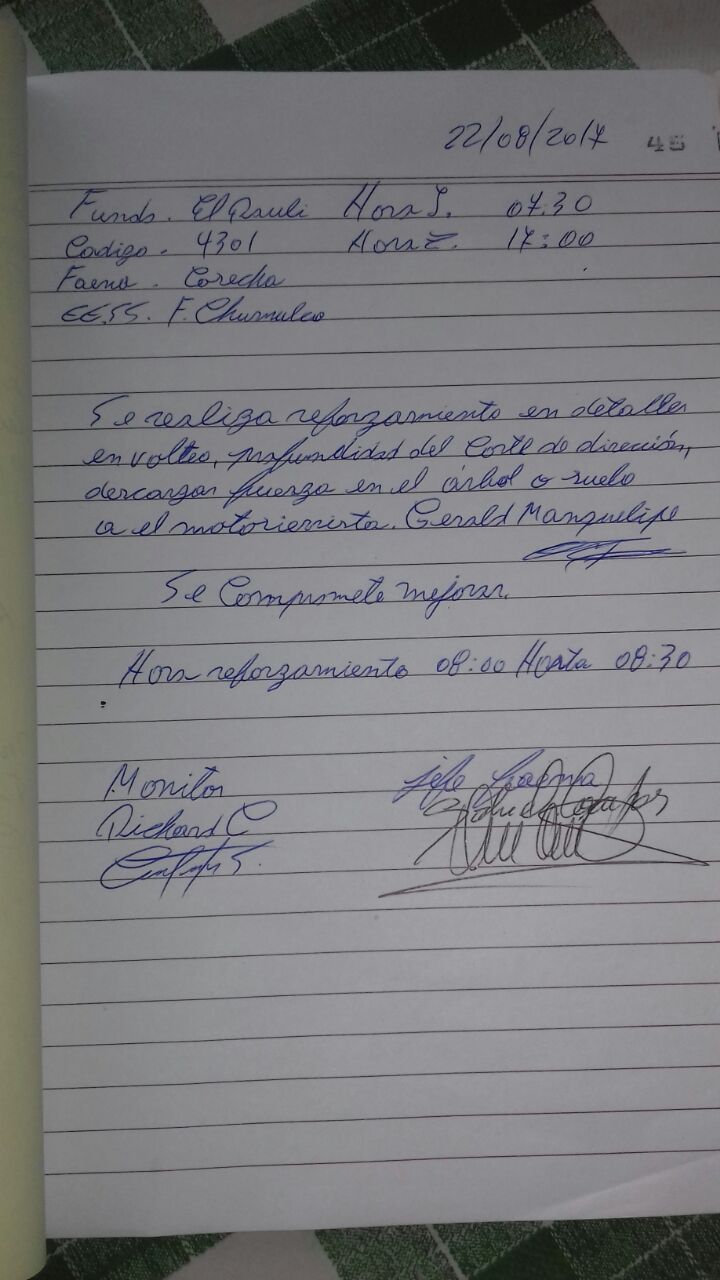 22/08/2017 45
Fundo. El Rauli Hora I. 07.30
Codigo. 4301 Hora T. 17:00
Faena. Cosecha
EE.SS. F. Chumulco
Se realiza reforzamiento en detalles
en volteo, profundidad del Corte de dirección,
descargar fuerza en el árbol o suelo
a el motocierrista. Gerald Manquelipe
Se Compromete mejorar.
Hora reforzamiento 08:00 Hasta 08:30
Monitor jefe faena
Richard C